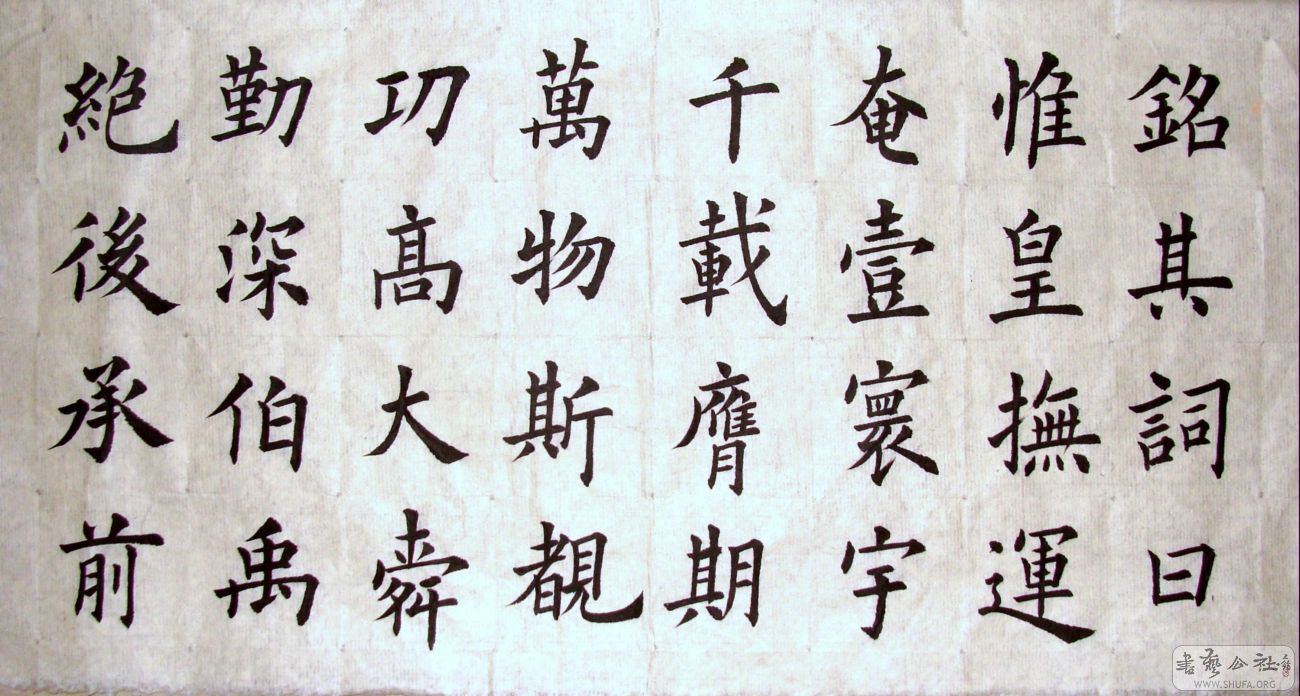 銘其詞曰
惟皇撫運
奄壹寰宇
千載膺期
萬物斯覩
功高大舜
勤深伯禹
絶後承前
書藝公社
WWW.SHUFA.ORG